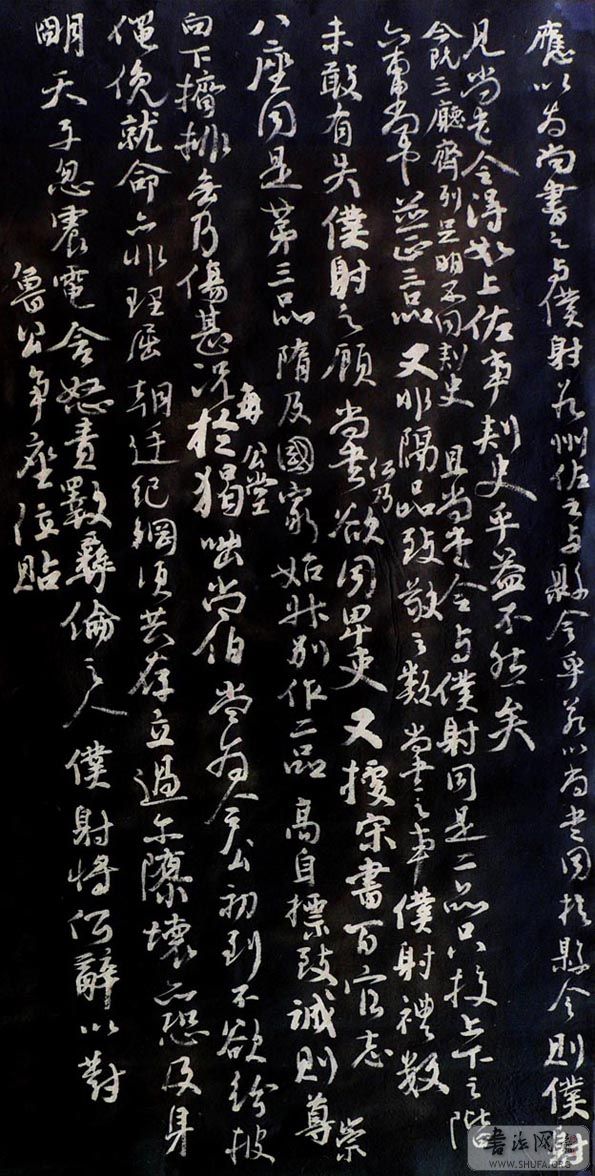 應以為尚書之与僕射若州佐之与縣令乎若以尚書同於縣令則僕射
見尚書令得如上佐事刺史乎益不然矣
今既三廳齊列足明不同刺史且尚書令与僕射同是二品只校上下之階
六曹尚書並正三品又非隔品致敬之類尚書之事僕射禮數
未敢有失僕射之顧尚書何乃欲同卑吏又據宋書百官志
八座同是第三品隋及國家始升別作二品高自標致誠則尊崇
向下擠排無乃傷甚況再於公堂猲咄常伯當為令公初到不欲紛披
僶俛就命亦非理屈朝廷紀綱須共存立過尔隳壞亦恐及身
明天子忽震電含怒責斁彝倫之人僕射將何辭以對
魯公爭座位貼
書法网
WWW.SHUFA.ORG